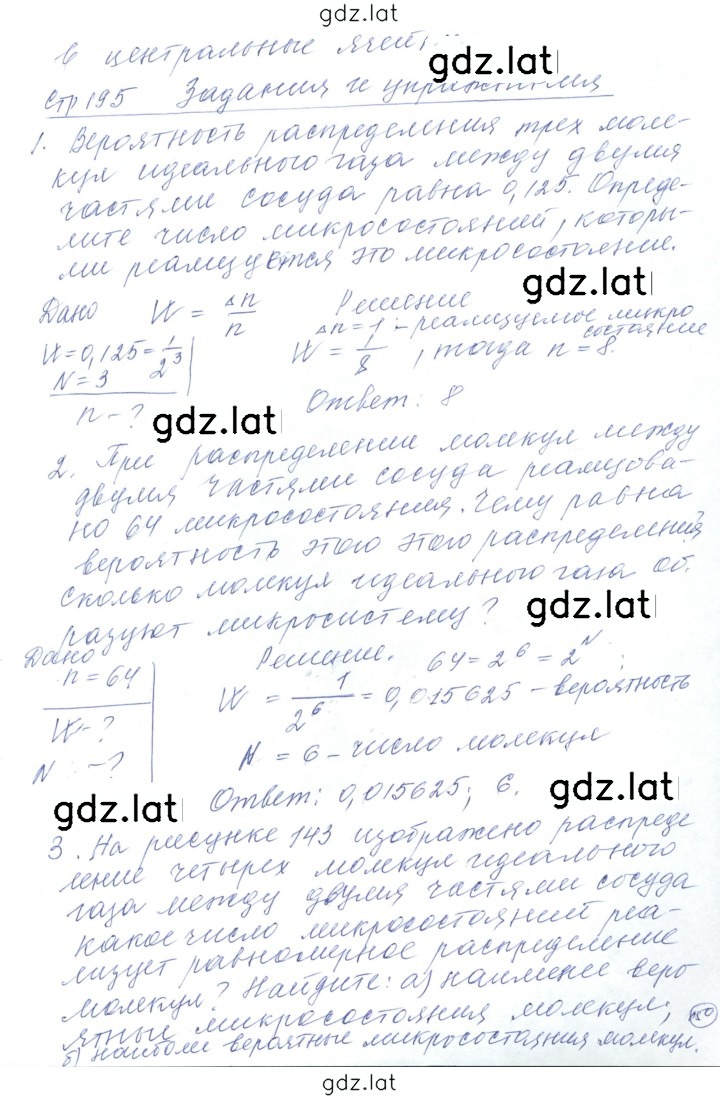 gdz.lat
в центральные ячей
gdz.lat
стр 195 Задания и упражнения
1. Вероятность распределения трех моле-
кул идеального газа между двумя
частями сосуда равна 0,125. Опреде-
лите число микросостояний, которы-
ми реализуется это микросостояние.
gdz.lat
Дано W = Δn/n Решение
Δn = 1 - реализуемое микро
состояние
W = 0,125 = 1/2³ W = 1/8, тогда n = 8.
N = 3
n - ? gdz.lat Ответ: 8
2. При распределении молекул между
двумя частями сосуда реализова-
но 64 микросостояния. Чему равна
вероятность этого этого распределения,
сколько молекул идеального газа об
разуют микросистему? gdz.lat
Дано Решение. 64 = 2⁶ = 2ᴺ;
n = 64
W = 1/2⁶ = 0,015625 - вероятность
W - ?
N - ? N = 6 - число молекул
gdz.lat Ответ: 0,015625; 6. gdz.lat
3. На рисунке 143 изображено распреде
ление четырех молекул идеального
газа между двумя частями сосуда
какое число микросостояний реа-
лизует равномерное распределение
молекул? Найдите: а) наименее веро
ятные микросостояния молекул;
б) наиболи вероятные микросостояния молекул.
gdz.lat